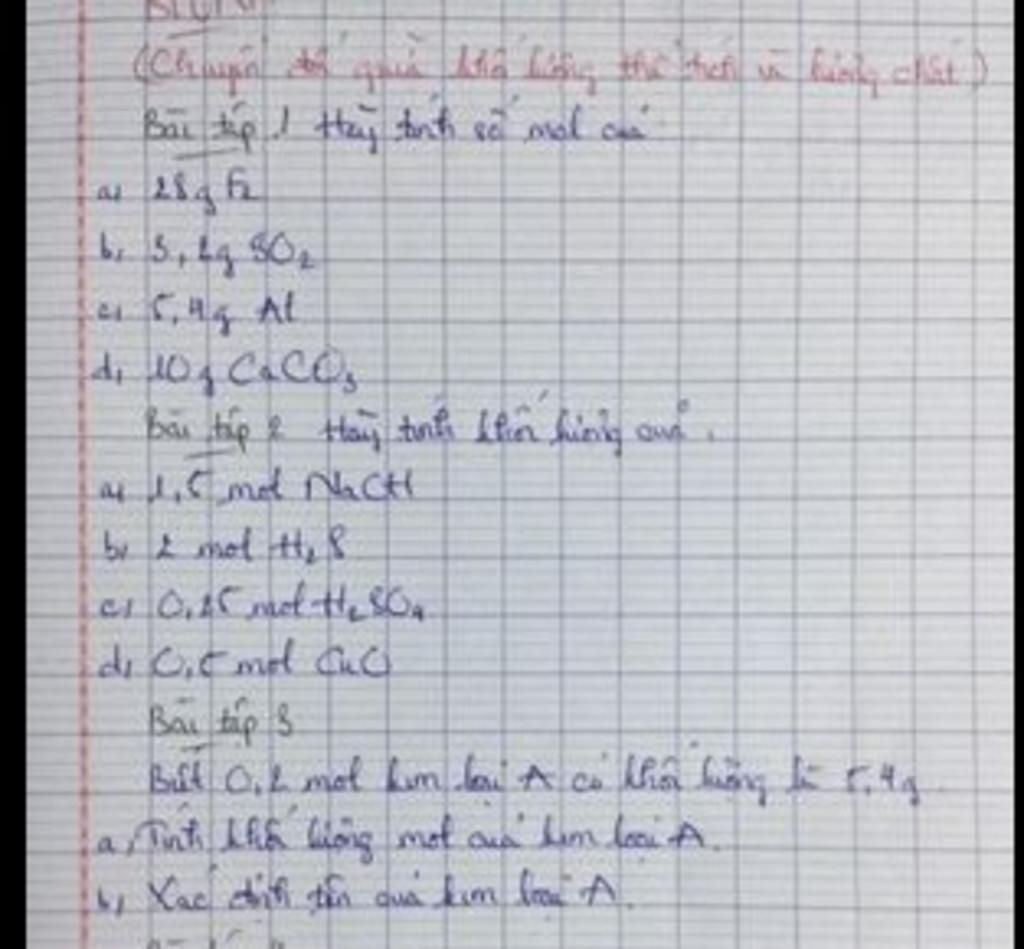 (Chuyển đổi giữa khối lượng thể tích và lượng chất)
Bài tập 1 Hãy tính số mol của
a, 28g Fe
b, 3,2g SO2
c, 5,4g Al
d, 10g CaCO3
Bài tập 2 Hãy tính khối lượng của.
a, 1,5 mol NaOH
b, 2 mol H2S
c, 0,25 mol H2SO4
d, 0,5 mol CuO
Bài tập 3
Biết 0,2 mol kim loại A có khối lượng là 5,4g.
a, Tính khối lượng mol của kim loại A.
b, Xác định tên của kim loại A.